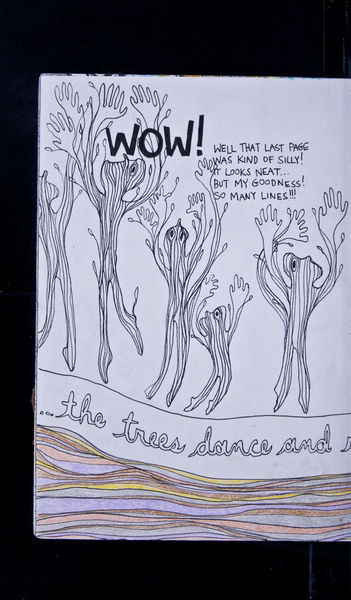 WOW!
WELL THAT LAST PAGE
WAS KIND OF SILLY!
IT LOOKS NEAT...
BUT MY GOODNESS!
SO MANY LINES!!!
...the trees dance and